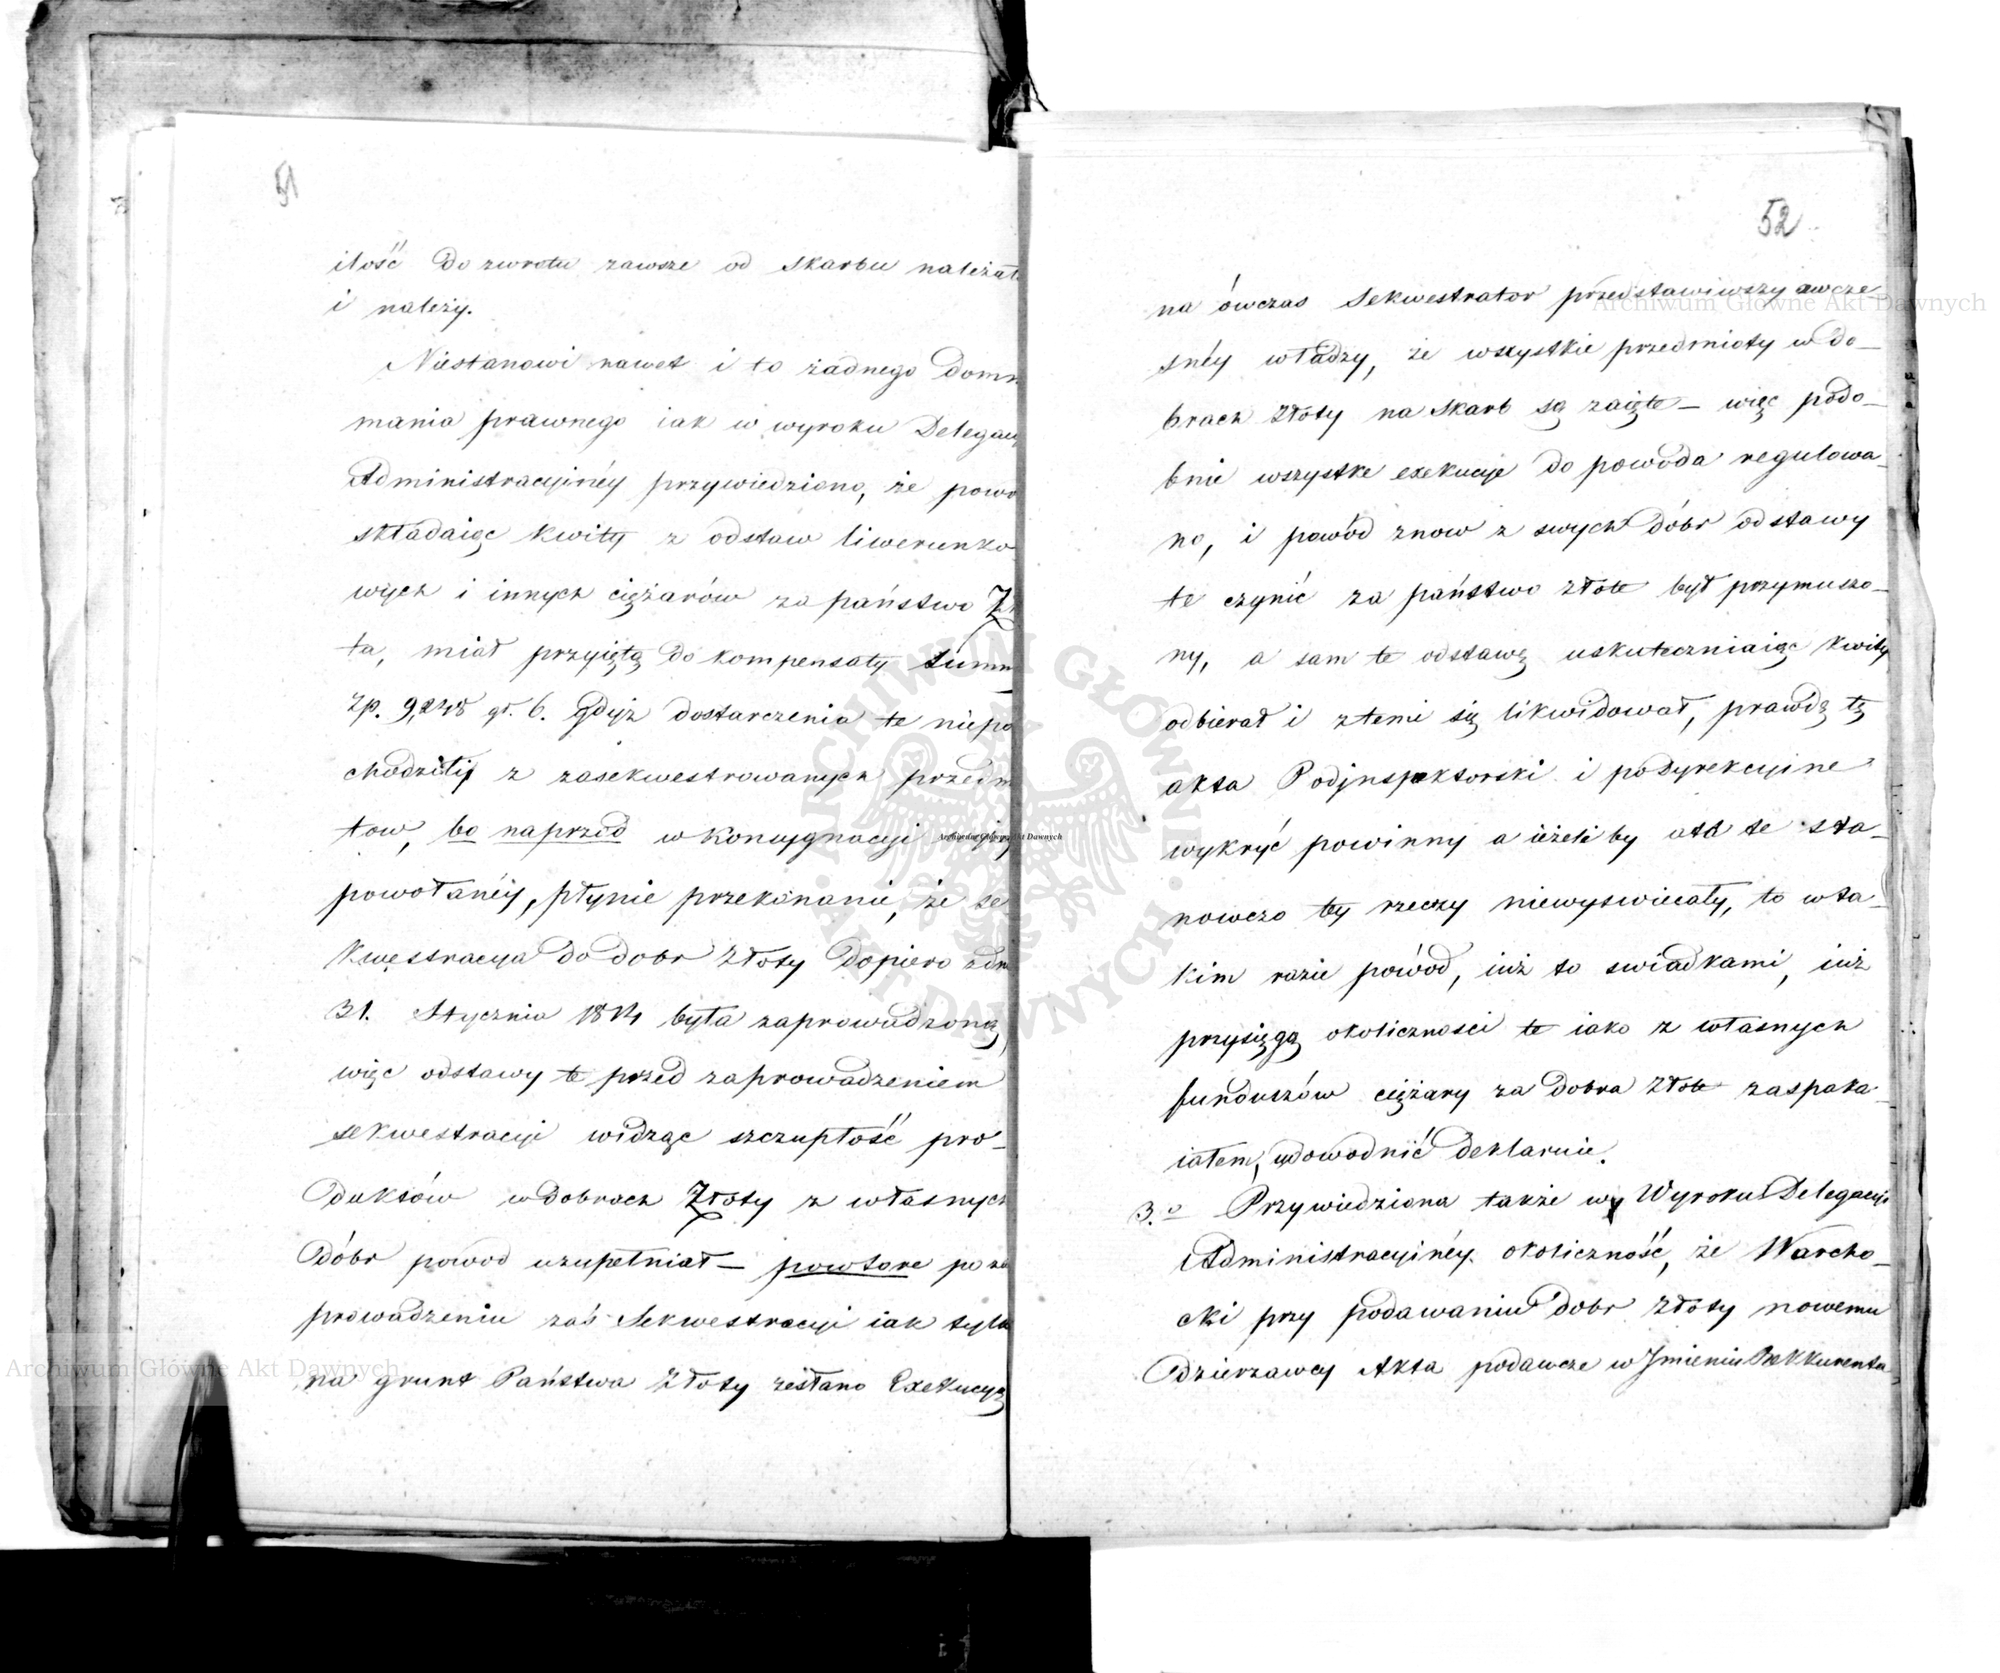 51
ilość do zwrotu zawsze od Skarbu należał
i należy.
Niestanowi nawet i to żadnego Domn
mania prawnego iak w wyroku Delegac
Administracyinéy przywiedziono, że powo
składaiąc kwity z odstaw liwerunko
wych i innych ciężarów za państwo Zł
ta, miał przyiętą do kompensaty Summ
zp. 9,248 gr. 6. gdyż dostarczenia te niepo
chodziły z zasekwestrowanych przedm
tow, bo naprzod w Konsygnacyi
powołanéy, płynie przekonanie, że Se
kwestracya do dobr Złoty dopiero zdn
31. Stycznia 1814 była zaprowadzoną,
więc odstawy te przed zaprowadzeniem
sekwestracyi widząc szczupłość pro-
duktów w dobrach Złoty z własnych
dóbr powod uzupełniał — powtore po za
prowadzeniu zaś Sekwestracyi iak tylk
na grunt Państwa Złoty zesłano Exekucyą
52
na ówczas Sekwestrator przedstawiwszy owcze
snéy władzy, że wszystkie przedmioty w do-
brach Złoty na Skarb są zaięte — więc podo-
bnie wszystke exekucye do powoda regulowa-
no, i powód znow z swych dóbr odstawy
te czynić za państwo Złote był przymuszo-
ny, a sam te odstawę uskuteczniaiąc kwity
odbierał i z temi się likwidował, prawdę tę
akta Podjnspektorski i podyrekcyine
wykryć powinny a ieżeli by akta te sta-
nowczo téy rzeczy niewyswiecały, to w ta-
kim razie powód, iuż to swiadkami, iuż
przysięgą okoliczności te iako z własnych
funduszów ciężary za dobra Złote zaspaka-
iałem, udowodnić deklaruie.
3.o Przywiedziona także w Wyroku Delegacyi
Administracyinéy okoliczność, że Warcho-
cki przy podawaniu dobr Złoty nowemu
Dzierżawcy Akta podawcze w Jmieniu Rekkurenta
Archiwum Główne Akt Dawnych
Archiwum Główne Akt Dawnych
Archiwum Główne Akt Dawnych
ARCHIWUM GŁÓWNE AKT DAWNYCH